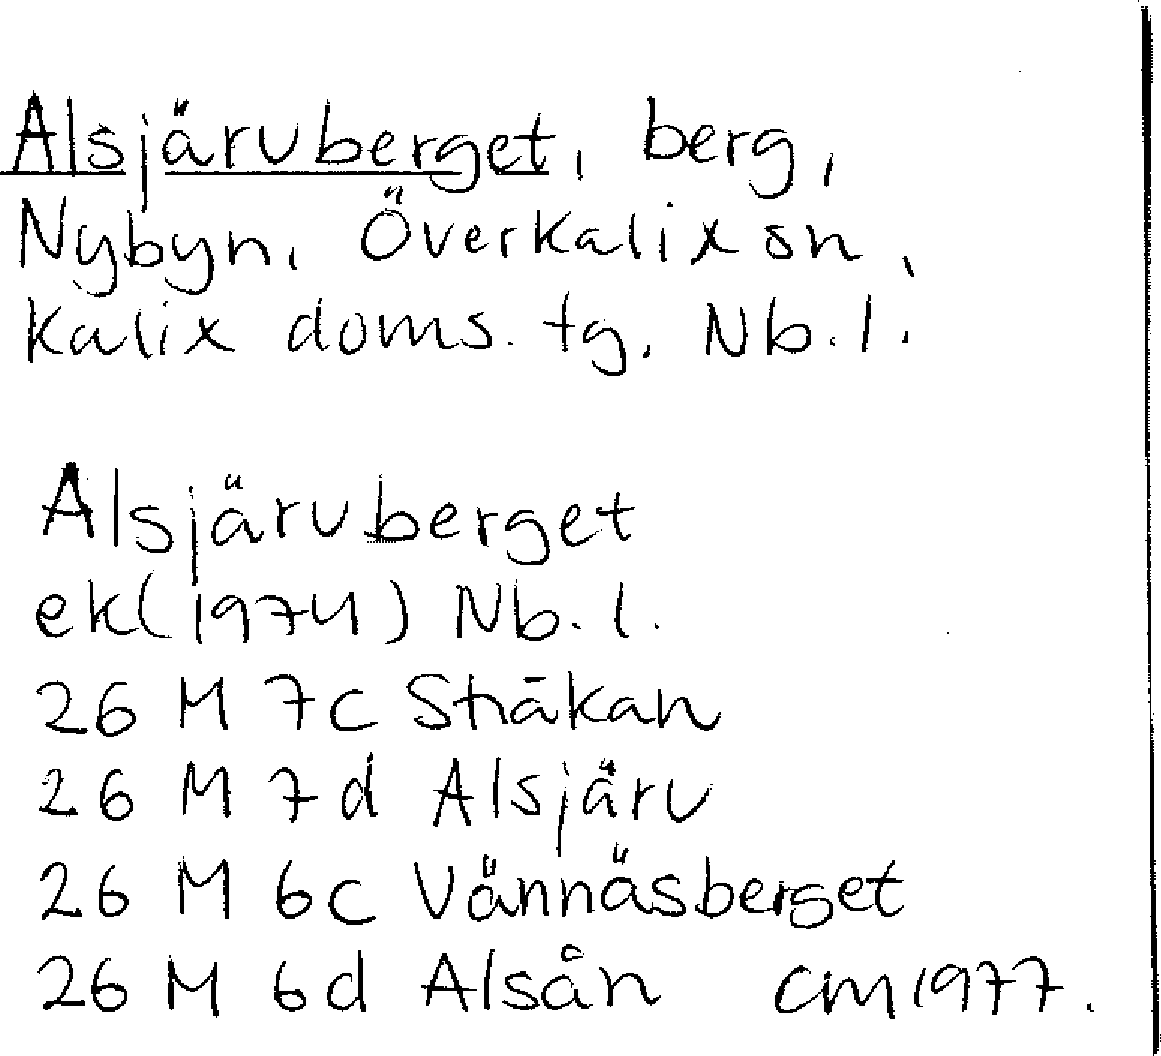 Alsjärvberget, berg,
Nybyn, Överkalix sn,
Kalix doms. tg, Nb.l.
Alsjärvberget
ek(1974) Nb.l.
26 M 7c Stråkan
26 M 7d Alsjärv
26 M 6c Vännäsberget
26 M 6d Alsån CM1977.